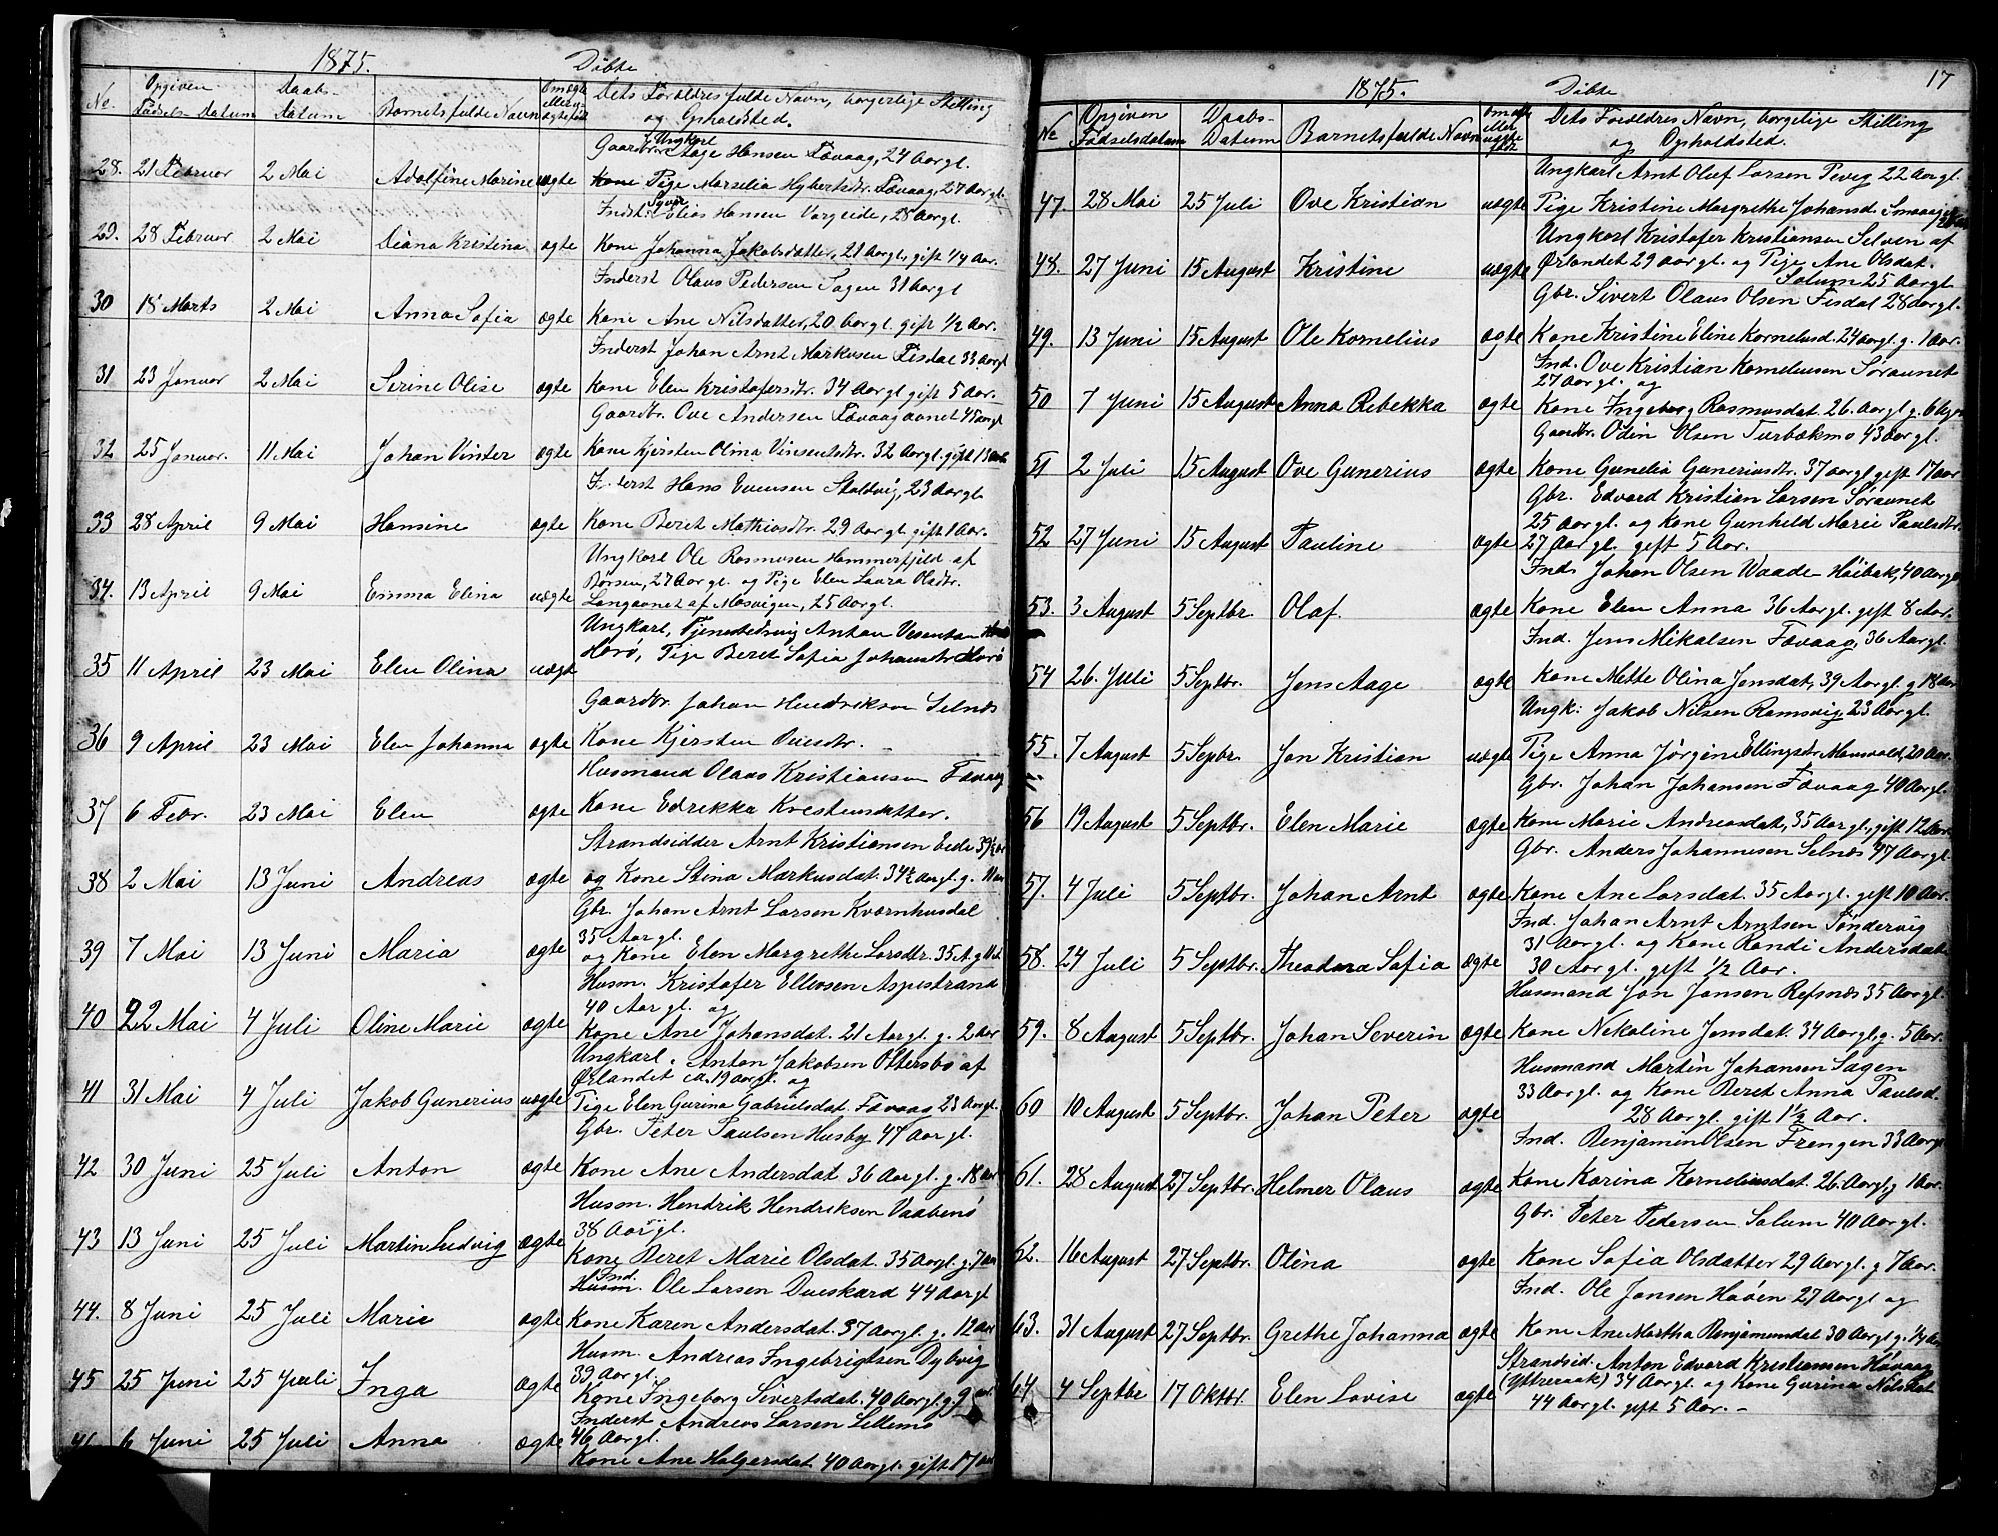 1875. Döbte
No. Opgiven Födsels-Datum Daabs-Datum Barnets fulde Navn Om ægte eller uægte født Dets Forældres fulde Navn, borgerlige Stilling og Opholdsted.
Gaardbr. Ungkarl Aage Hansen Fævaag, 24 Aar gl.
28. 21 Februar 2 Mai Adolfine Marine uægte Kone Pige Marselia Hybertsdtr. Fævaag 27 Aar gl.
Indst: Elias Hansen Vargeide, 28 Aar gl.
29. 28 Februar 2 Mai Diana Kristina ægte Kone Johanna Jakobsdatter, 21 Aar gl., gift 1/4 Aar.
Inderst Olaus Pedersen Sagen 31 Aar gl
30 18 Marts 2 Mai Anna Sofia ægte Kone Ane Nilsdatter, 20 Aar gl. gift 1/2 Aar.
Inderst Johan Arnt Markusen Fisdal 33 Aar gl
31 23 Januar 2 Mai Serine Olise ægte Kone Elen Kristofersdtr. 34 Aar gl gift 5 Aar.
Gaardbr. Ove Andersen Fævaagavnet 45 Aar gl
32 25 Januar. 11 Mai Johan Vinter ægte Kone Kjersten Olina Vinsentsdtr. 32 Aar gl. gift 13 Aar
Inderst Hans Evensen Staldvig, 23 Aar gl
33 28 April 9 Mai Hansine ægte Kone Beret Mathiasdtr. 29 Aar gl gift 1 Aar.
Ungkarl Ole Rasmusen Hammerfjeldt af
Börsen, 27 Aar gl. og Pige Elen Laura Olsdtr.
34. 13 April 9 Mai Emma Elina uægte Langavnet af Mosvigen, 25 Aar gl.
Ungkarl, Anton Vesentsen
35 11 April 23 Mai Elen Olina uægte Harö, Pige Beret Sofia Johansdtr Harö
Gaardbr. Johan Hendriksen Selnes
36 9 April 23 Mai Elen Johanna ægte Kone Kjersten Ovesdtr. —
Husmand Olaus Kristiansen Fævaag
37 6 Febr. 23 Mai Elen ægte Kone Edrekka Krestensdatter.
Strandsidder Arnt Kristiansen Eide 39½ Aar
38 2 Mai 13 Juni Andreas ægte og Kone Stina Markusdat. 34½ Aar gl. g. 11 Aar
Gbr. Johan Arnt Larsen Kværnhusdal
35 Aar gl.
39 7 Mai 13 Juni Maria ægte og Kone Elen Margrethe Larsdtr. 35 A. g 11 A.
Husm. Kristofer Ellevsen Aspestrand
40 Aar gl. og
40 22 Mai 4 Juli Oline Marie ægte Kone Ane Johansdat. 21 Aar gl. g. 2 Aar
Ungkarl. Anton Jakobsen Ottersbo af
Ørlandet ca. 19 Aar gl. og
41 31 Mai 4 Juli Jakob Gunerius uægte Pige Elen Gurina Gabrielsdat. Fævaag 23 Aar gl.
Gbr. Peter Paulsen Husby 47 Aar gl.
42 30 Juni 25 Juli Anton ægte Kone Ane Andersdat 36 Aar gl. g. 18 Aar
Husm. Hendrik Hendriksen Vaabenö
38 Aar gl.
43 13 Juni 25 Juli Martin Ludvig ægte Kone Beret Marie Olsdat. 35 Aar gl. g. 7 Aar
Husm. Ind. Ole Larsen Dueskard 44 Aar gl
44. 8 Juni 25 Juli Marie ægte Kone Karen Andersdat. 37 Aar gl. g. 12 Aar
Husm. Andreas Ingebrigtsen Dybvig
39 Aar gl.
45 25 Juni 25 Juli Inga ægte Kone Ingeborg Sivertsdat. 40 Aar gl. g. 9 Aar
Inderst Andreas Larsen Lillemo
46 Aar gl.
46 6 Juni 25 Juli Anna ægte Kone Ane Holgersdat. 40 Aar gl. gift 17 Aar
1875. Döbte 17
No Opgiven Födselsdatum Daabs-Datum Barnets fulde Navn Om ægte eller uægte født Dets Forældres Navn, borgelige Stilling og Opholdsted.
Ungkarl Arnt Oluf Larsen Pevig 22 Aar gl.
47. 28 Mai 25 Juli Ove Kristian uægte Pige Kristine Margrethe Johansd.
Ungkarl Kristofer Kristiansen Selven af
48. 27 Juni 15 August Kristine uægte Ørlandet 29 Aar gl. og Pige Ane Olsdat.
Salum 25 Aar gl
Gbr. Sivert Olaus Olsen Fisdal 28 Aar gl.
49. 13 Juni 15 August Ole Kornelius ægte Kone Kristine Eline Kornelusd. 24 Aar gl. g. 1 Aar.
Ind. Ove Kristian Korneliusen Söraunet
27 Aar gl. og
50 7 Juni 15 August Anna Rebekka ægte Kone Ingeborg Rasmusdat. 26 Aar gl g. 6 Ugr.
Gaardbr. Odin Olsen Turbækmo 43 Aar gl.
51 2 Juli 15 August Ove Gunerius ægte Kone Gunelia Guneriusdtr. 37 Aar gl gift 17 Aar
Gbr. Edvard Kristian Larsen Söraunet
25 Aar gl. og Kone Gunhild Marie Paulsdtr.
52 27 Juni 15 August Pauline ægte 27 Aar gl. gift 5 Aar.
Inds Johan Olsen Waade Høibak, 40 Aar gl
53. 3 August 5 Septbr Olaf. ægte Kone Elen Anna 36 Aar gl. gift 8 Aar.
Ind. Jens Mikalsen Fævaag, 36 Aar gl.
54 26. Juli 5 Septbr. Jens Aage ægte Kone Mette Olina Jensdat, 39 Aar gl. g 18 Aar
Ungk: Jakob Nilsen Ramsvig, 23 Aar gl.
55. 7 August 5 Sepbr. Jon Kristian uægte Pige Anna Jørgine Ellingsdtr Monsvold, 20 Aar.
Gbr. Johan Johansen Fævaag 40 Aar gl.
56 19 August 5 Septbr. Elen Marie ægte Kone Marie Andreasdat, 35 Aar gl., gift 12 Aar
Gbr. Anders Johannesen Selnæs 47 Aar gl.
57. 4 Juli 5 Septbr. Johan Arnt ægte Kone Ane Larsdat. 35 Aar gl. gift 10 Aar.
Ind. Johan Arnt Arntsen Töndervig
31 Aar gl. og Kone Randi Andersdat
58. 24 Juli 5 Septbr. Theodora Sofia ægte 30 Aar gl. gift 1/2 Aar.
Husmand Jon Jonsen Refsnæs 35 Aar gl.
59. 8 August 5 Septbr. Johan Severin ægte Kone Nekoline Jonsdat. 34 Aar gl. g. 5 Aar.
Husmand Martin Johansen Sagen
33 Aar gl. og Kone Beret Anna Paulsd.
60 10 August 5 Septbr. Johan Peter ægte 28 Aar gl. gift 1½ Aar.
Ind. Benjamin Olsen Frengen 33 Aar gl
61. 28 August 27 Septbr. Helmer Olaus ægte Kone Karina Korneliusdat. 26 Aar gl, g 1 Aar.
Gbr. Peter Pedersen Salum 40 Aar gl.
62. 16 August 27 Septbr. Olina ægte Kone Sofia Olsdatter 29 Aar gl. g 7 Aar.
Ind. Ole Jonsen Haven 27 Aar gl og
63. 31 August 27 Septbr. Grethe Johanna ægte Kone Ane Martha Benjaminsdat 30 Aar gl g. 1/4 Aar
Strandsid. Anton Edvard Kristiansen Hövaag
(Yttrevaak) 34 Aar gl. og Kone Gurina Nilsdat
64 4 Septbr 17 Oktbr. Elen Lovise ægte 44 Aar gl. gift 5 Aar. —